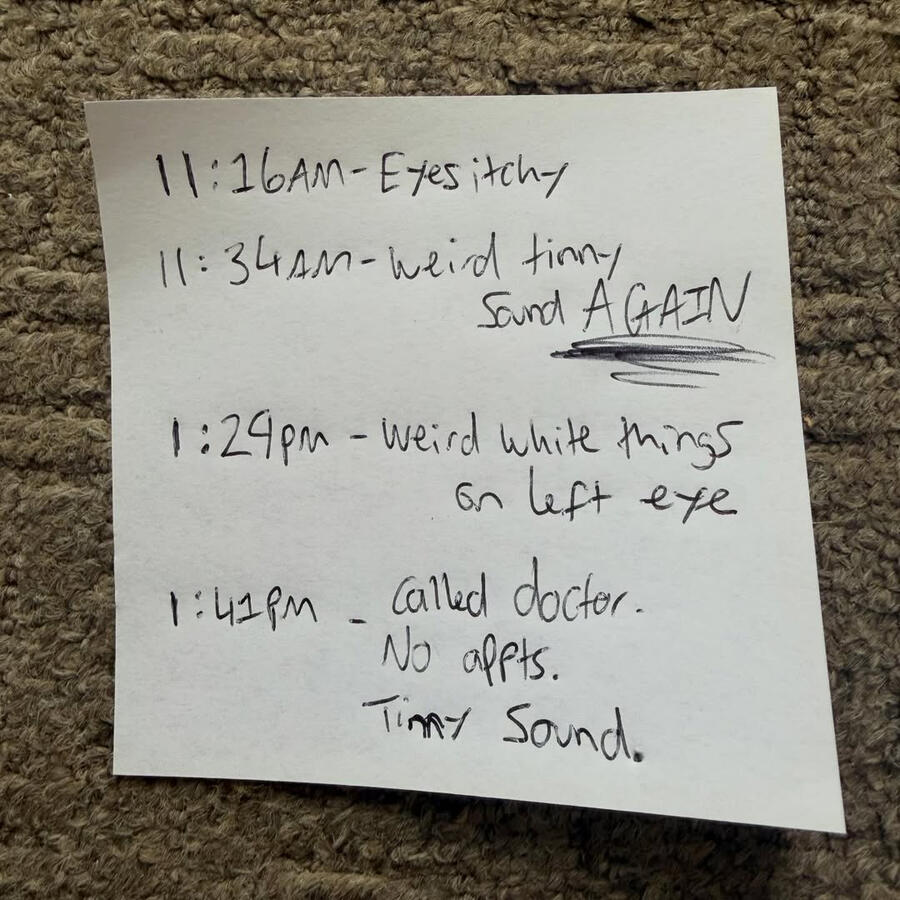 11:16AM - Eyes itchy
11:34AM - weird tinny
sound AGAIN
1:29pm - weird white things
on left eye
1:41PM - called doctor.
No appts.
Tinny Sound.